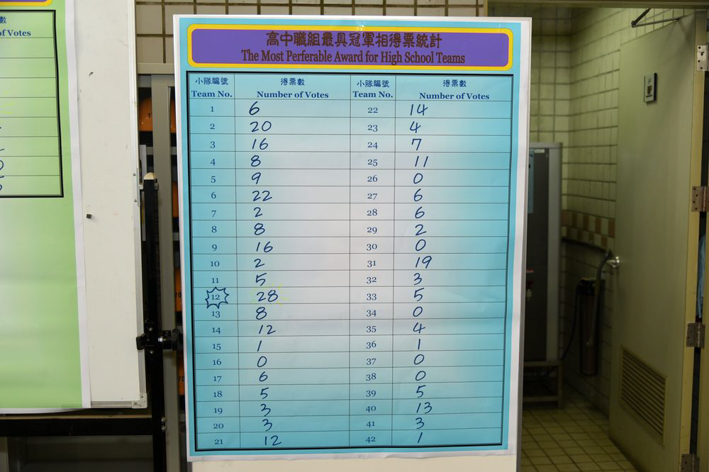 高中職組最具冠軍相得票統計
The Most Perferable Award for High School Teams
小隊編號 得票數 小隊編號 得票數
Team No. Number of Votes Team No. Number of Votes
1 6 22 14
2 20 23 4
3 16 24 7
4 8 25 11
5 9 26 0
6 22 27 6
7 2 28 6
8 8 29 2
9 16 30 0
10 2 31 19
11 5 32 3
12 28 33 5
13 8 34 0
14 12 35 4
15 1 36 1
16 0 37 0
17 6 38 0
18 5 39 5
19 3 40 13
20 3 41 3
21 12 42 1
得票數
of Votes